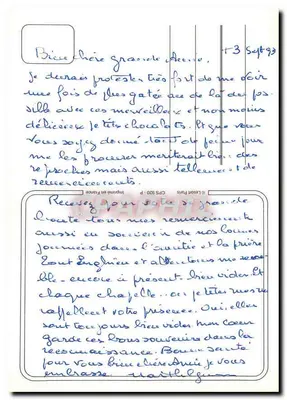 3 Sept 93
Bien chère grande Amie,
Je devrais protester très fort de me voir
une fois de plus gâtée au de là du pos-
sible avec ces merveilleux et non moins
délicieux petits chocolats. Et que vous
vous soyez donné tant de peine pour
me les procurer mériterait bien des
reproches mais aussi tellement de
remerciements.
Recevez pour
toute tous mes remerciements
aussi en souvenir de nos bonnes
journées dans l'amitié et la prière
Tout Enghien et
encore à présent bien vides. Et
chaque chapelle
rappellent votre présence. Oui, elles
sont toujours bien vides. Mon cœur
garde ces bons souvenirs dans la
reconnaissance. Bonne santé
pour vous bien chère Amie, je vous
embrasse